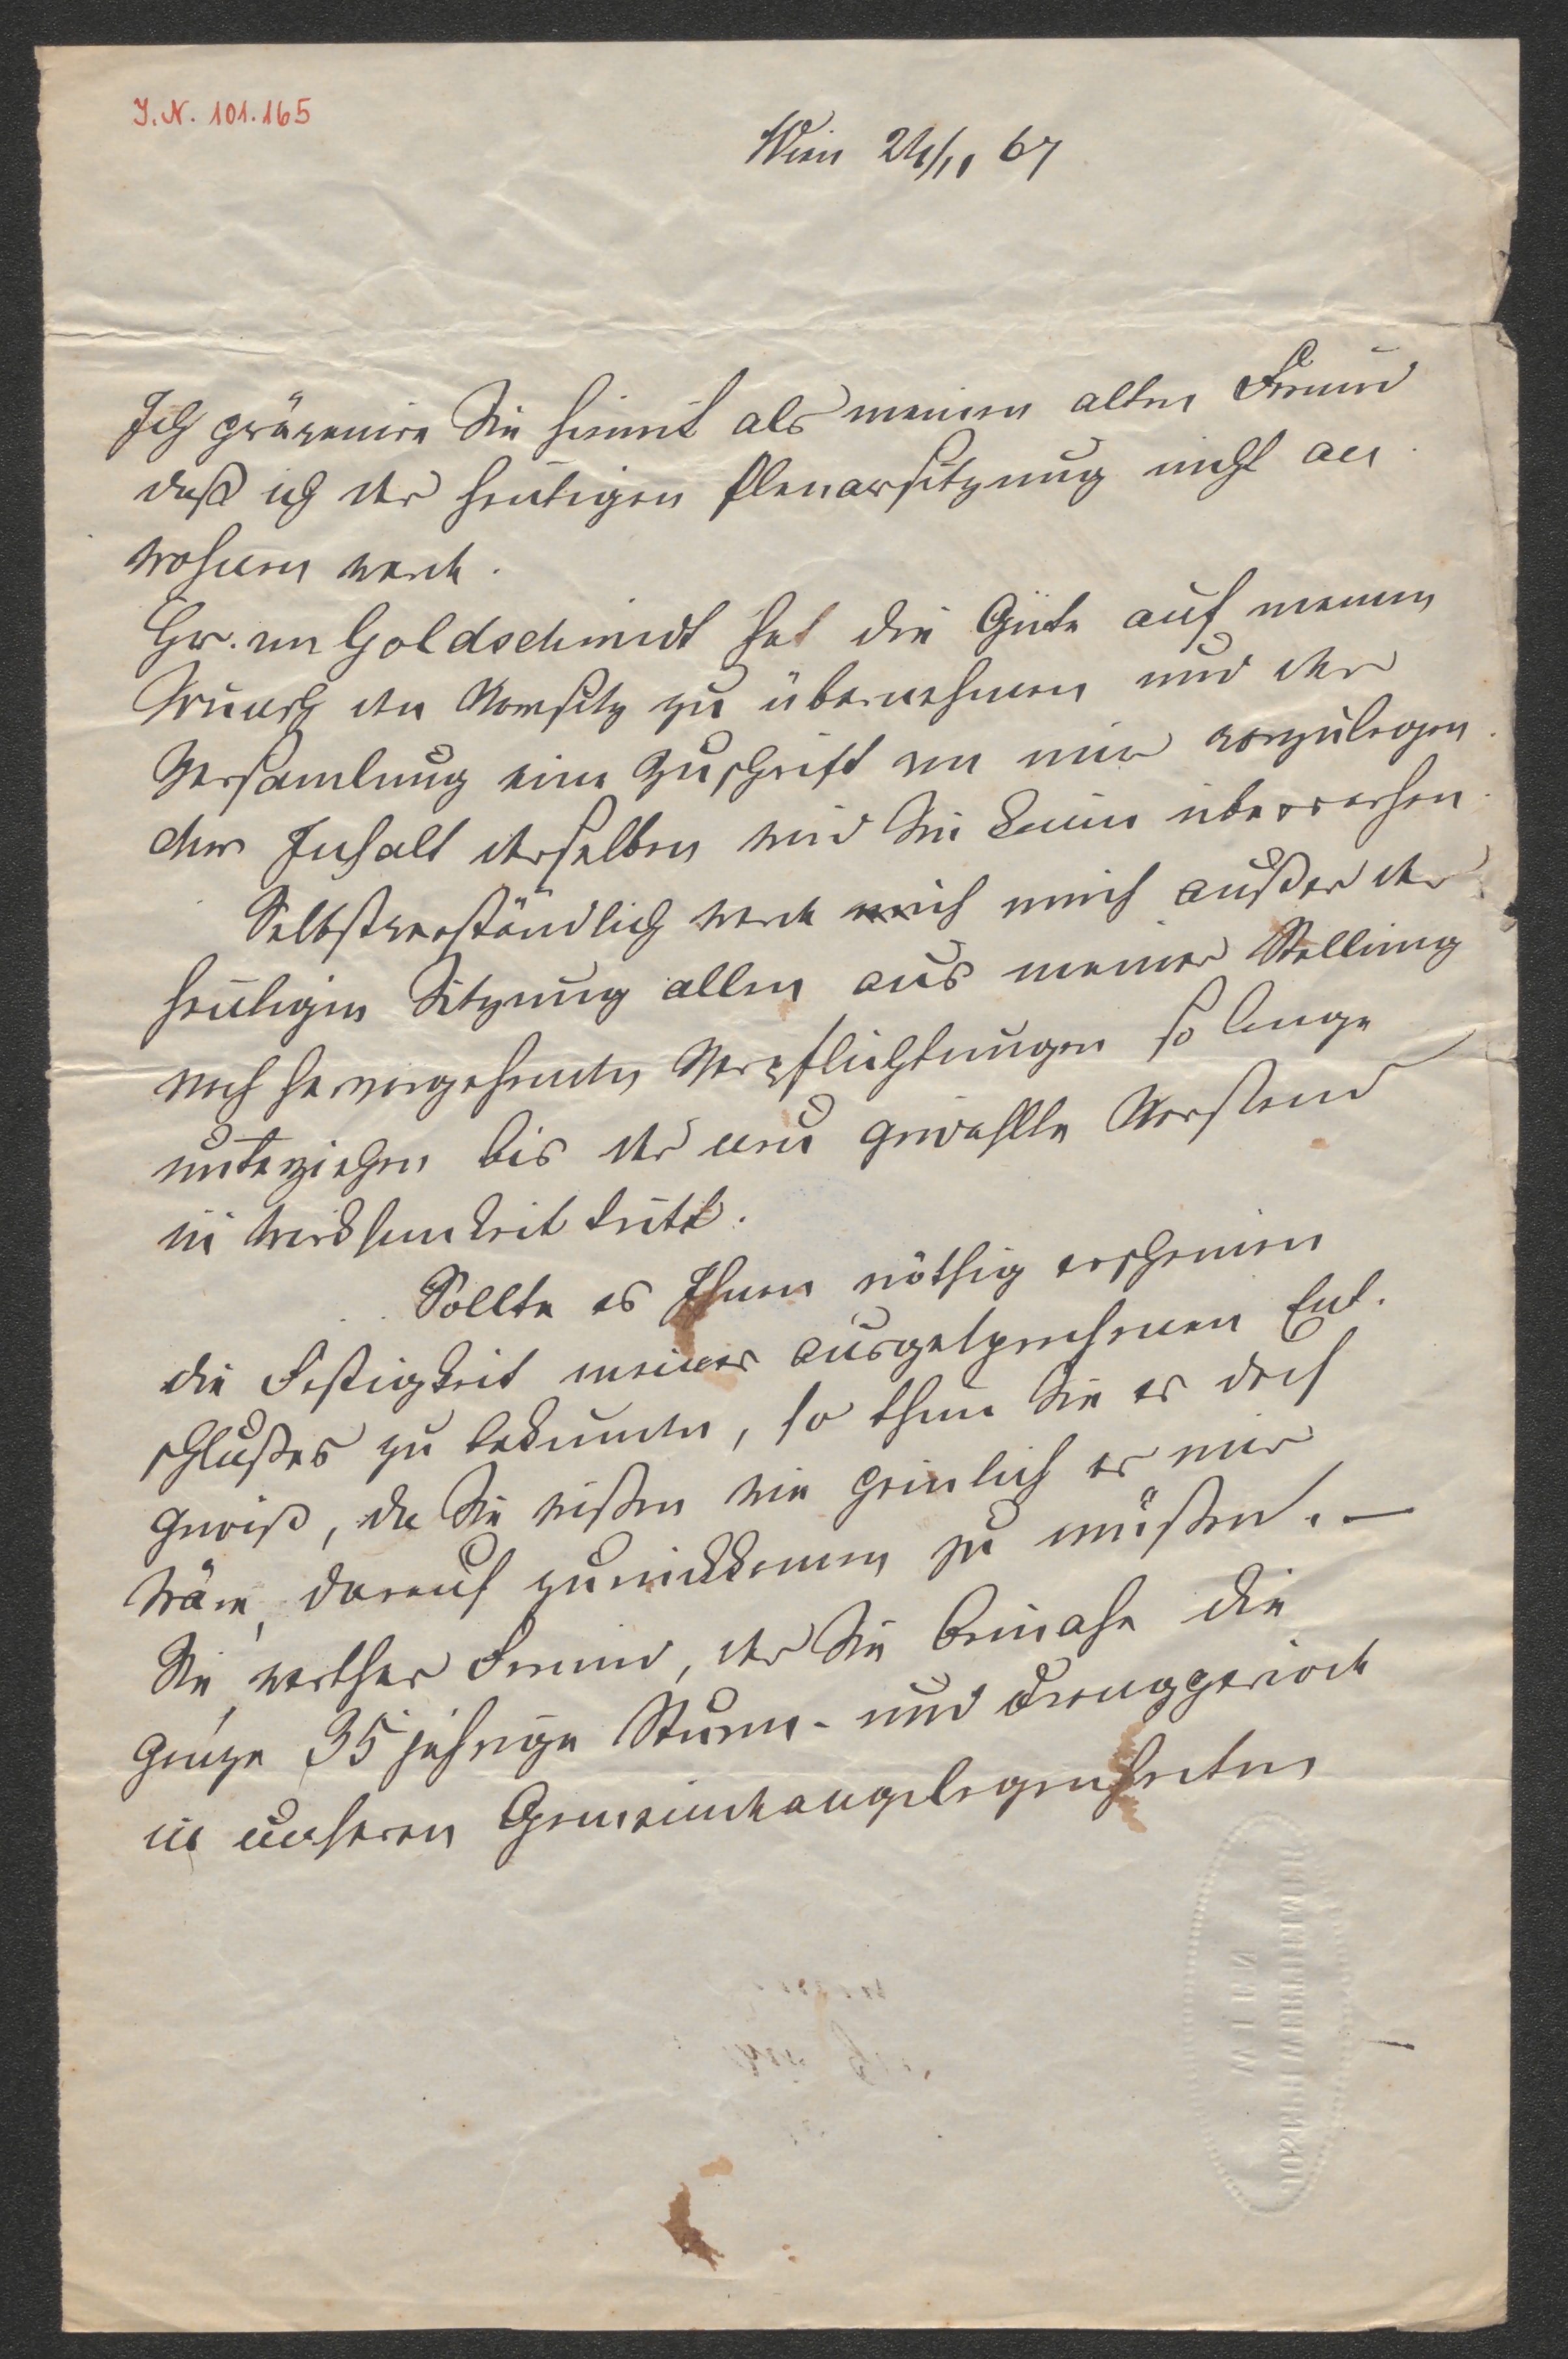 I.N. 101.165
Wien 24/11 67
Ich prävenire Sie hiemit als meinen alten Freund
daß ich der heutigen Plenarsitzung nicht an
wohnen werde.
Hr. von Goldschmidt hat die Güte auf meinen
Wunsch den Vorsitz zu übernehmen und der
Versamlung eine Zuschrift von mir vorzulegen.
der Inhalt derselben wird Sie kaum überraschen.
Selbstverständlich werde ich mich außer der
heutigen Sitzung allen aus meiner Stellung
noch hervorgehenden Verpflichtungen so lange
unterziehen bis der neu gewählte Vorstand
in Wirksamkeit tritt.
Sollte es Ihnen nöthig erscheinen
die Festigkeit meines ausgesprochenen Ent-
schlußes zu bekunden, so thun Sie es doch
gewiß, da Sie wißen wie peinlich es mir
wäre, darauf zurückkommen zu müßen. —
Sie, werther Freund, der Sie beinahe die
ganze 35 jährige Sturm- und Drangperiode
in unseren Gemeindeangelegenheiten
WIEN